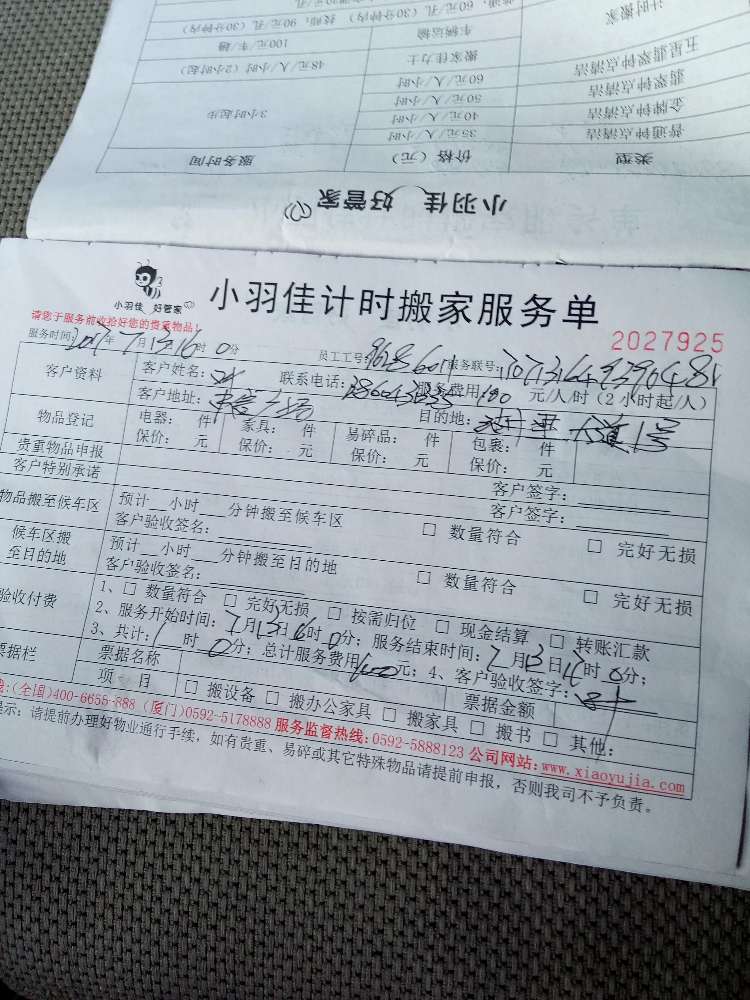 普通，60元/孔/（30分钟内） 技师，90元/孔（30分钟内）
计时搬家
车辆运输 100元/车/趟
搬家佳力士 48元/人/小时（2小时起）
五星翡翠钟点清洁 60元/人/小时
翡翠钟点清洁 50元/人/小时
金牌钟点清洁 40元/人/小时
普通钟点清洁 35元/人/小时
3小时起步
类型 价格（元） 服务时间
小羽佳 好管家
小羽佳 好管家
小羽佳计时搬家服务单
请您于服务前收拾好您的贵重物品！
2027925
服务时间：2017年7月13日16时0分 员工工号： 服务联号：
客户资料 客户姓名： 联系电话： 服务费用：100元/人/时（2小时起/人）
客户地址： 目的地： 大道1号
物品登记 电器： 件 家具： 件 易碎品： 件 包裹： 件
保价： 元 保价： 元 保价： 元 保价： 元
贵重物品申报 客户签字：
客户特别承诺 客户签字：
物品搬至候车区 预计 小时 分钟搬至候车区 □ 数量符合 □ 完好无损
客户验收签名：
候车区搬至目的地 预计 小时 分钟搬至目的地 □ 数量符合 □ 完好无损
客户验收签名：
验收付费 1、□ 数量符合 □ 完好无损 □ 按需归位 □ 现金结算 □ 转账汇款
2、服务开始时间：7月13日16时0分；服务结束时间：7月13日 时0分；
3、共计：1时0分；总计服务费用 元；4、客户验收签字：
票据栏 票据名称 票据金额
项 目 □ 搬设备 □ 搬办公家具 □ 搬家具 □ 搬书 □ 其他：
线：(全国)400-6655-888 (厦门)0592-5178888 服务监督热线：0592-5888123 公司网站：www.xiaoyujia.com
提示：请提前办理好物业通行手续，如有贵重、易碎或其它特殊物品请提前申报，否则我司不予负责。